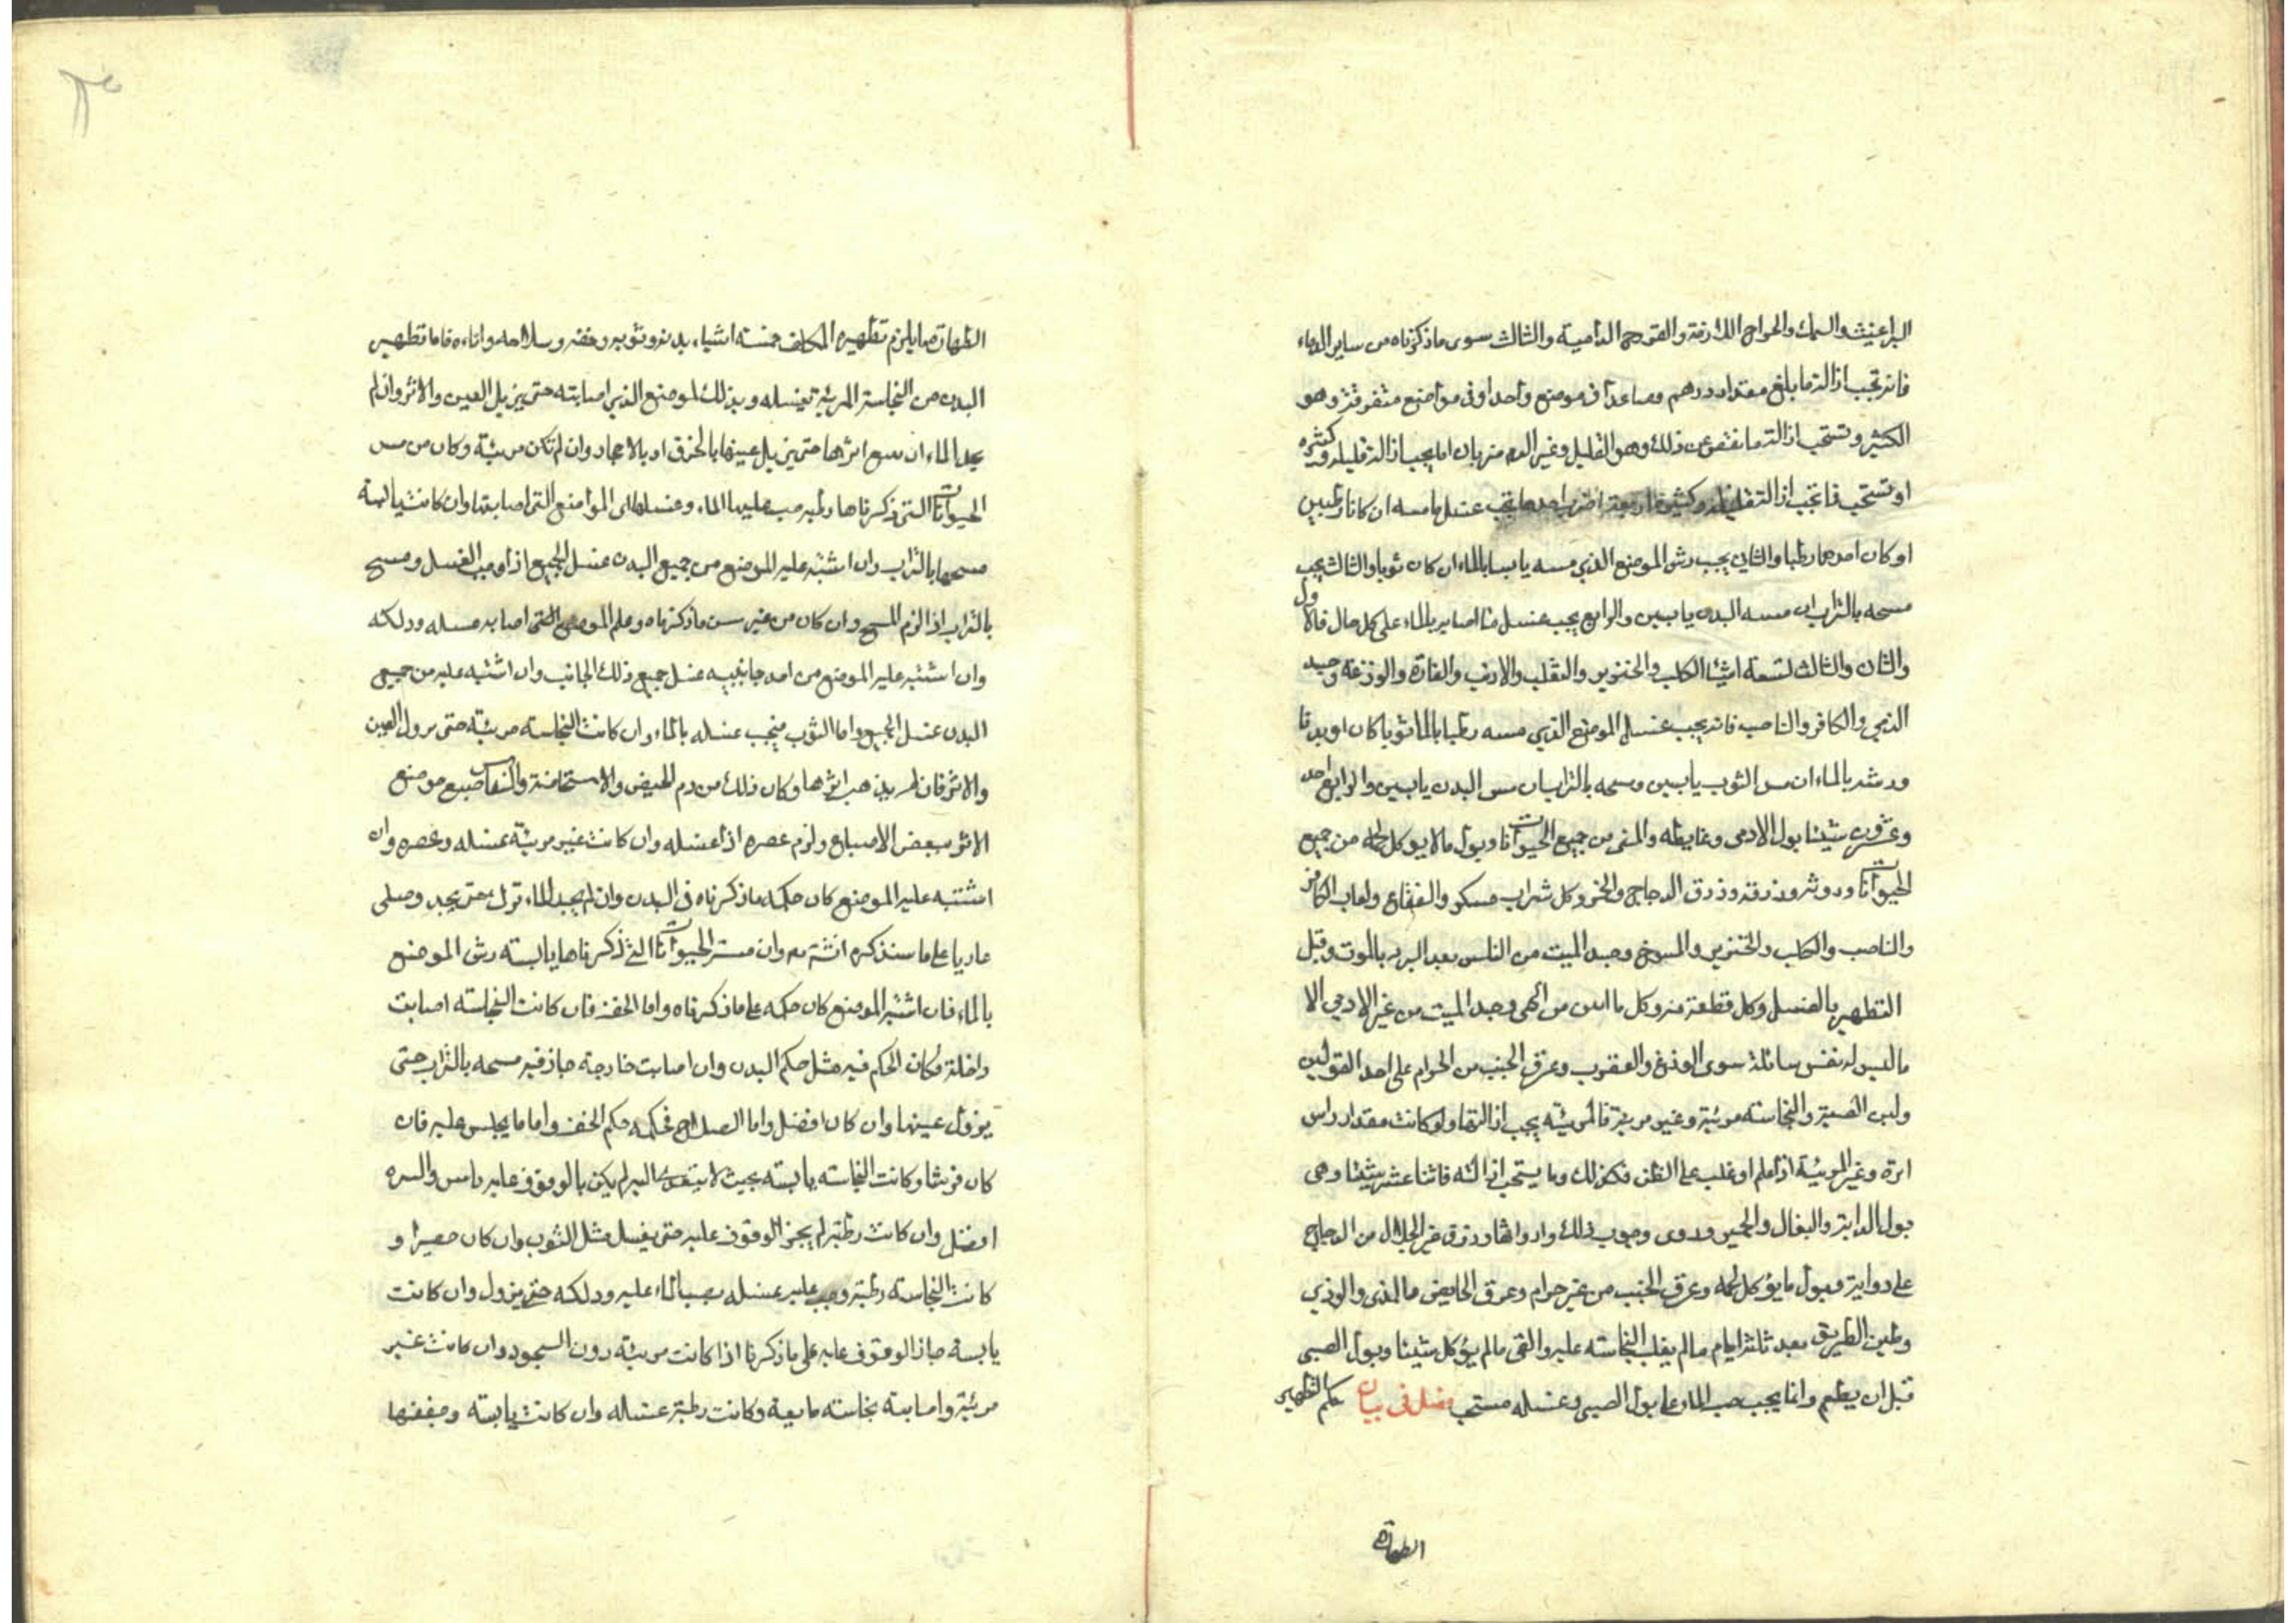 البراغيث والسمك والجراح اللازمة والقروح الدامية والثالث سوى ماذكرناه من ساير الدماء
فانه تجب ازالة ما بلغ مقدار درهم فصاعدا فى موضع واحد او فى مواضع متفرقة وهو
الكثير وتستحب ازالة ما نقص عن ذلك وهو القليل وغير الدم ضربان اما يجب ازالة قليله وكثيره
او تستحب فما تجب ازالة قليله وكثيره اربعة اضرب احدها يجب غسل ما مسه ان كانا رطبين
او كان احدهما رطبا والثانى يجب رش الموضع الذى مسه يابسا بالماء ان كان ثوبا والثالث يجب
مسحه بالتراب ان مسه البدن يابسين والرابع يجب غسل ما اصابه بالماء على كل حال فالاول
والثان والثالث لتسعة اشيا الكلب والخنزير والثعلب والارنب والفارة والوزغة وجسد
الذمي والكافر والناصب فانه يجب غسل الموضع الذى مسه رطبا بالما ثوبا كان او بدنا
ورشه بالماء ان مس الثوب يابسين ومسحه بالتراب ان مس البدن يابسين والرابع احد
وعشرون شيئا بول الادمى وغايطه والمنى من جميع الحيوانات وبول مالا يوكل لحمه من جميع
الحيوانات وروثه وذرقه وذرق الدجاج والخمر وكل شراب مسكر والفقاع ولعاب الكافر
والناصب والكلب والخنزير والمسوخ وجسد الميت من الناس بعد البرد بالموت وقبل
التطهير بالغسل وكل قطعة منه وكل ما ابين من الحى وجسد الميت من غير الادمي الا
ماليس له نفس سائلة سوى الوزغ والعقرب وعرق الجنب من الحرام على احد القولين
ولبن الصبية والنجاسة مرئية وغير مرئية فالمرئية يجب ازالتها ولو كانت مقدار راس
ابرة وغير المرئية اذا علم او غلب على الظن فكذلك وما يستحب ازالته فاثنا عشر شيئا وهى
بول الدابة والبغال والحمير وروى وجوب ذلك وارواثها وذرق غير الجلال من الدجاج
على رواية وبول مايؤكل لحمه وعرق الجنب من غير حرام وعرق الحايض والمذى والوذي
وطين الطريق بعد ثلثة ايام مالم يغلب النجاسة عليه والقى مالم يؤكل شيئا وبول الصبى
قبل ان يطعم وانما يجب صب الماء على بول الصبى وغسله مستحب فصل فى بيان حكم التطهير
الطهارة
الطهارة ما يلزم تطهيره المكلف خمسة اشياء بدنه وثوبه وخفه وسلاحه واناءه فاما تطهير
البدن من النجاسة المرئية تغسله وبدلك الموضع الذى اصابته حتى يزيل العين والاثر وان لم
يجد الماء ان اثرها حتى يزيل عينها بالخرق او بالاحجار وان لم تكن مرئية وكان من مس
الحيوانات التى ذكرناها رطبه صب عليها الماء وغسلها اى المواضع التى اصابتها وان كانت يابسة
مسحها بالتراب وان اشتبه عليه الموضع من جميع البدن غسل الجميع اذا وجب الغسل ومسح
بالتراب اذا لزم المسح وان كان من غير مس ماذكرناه وعلم الموضع التى اصابه غسله ودلكه
وان اشتبه عليه الموضع من احد جانبيه غسل جميع ذلك الجانب وان اشتبه عليه من جميع
البدن غسل الجميع واما الثوب فيجب غسله بالماء وان كانت النجاسة مرئية حتى يزول العين
والاثر فان لم يذهب اثرها وكان ذلك من دم الحيض والاستحاضة والنفاس صبغ موضع
الاثر ببعض الاصباغ ولزم عصره اذا غسله وان كانت غير مرئية غسله وعصره وان
اشتبه عليه الموضع كان حكمه ماذكرناه فى البدن وان لم يجد الماء ترك حتى يجد وصلى
عاريا على ما سنذكره انشتع وان مسته الحيوانات التى ذكرناها يابسة رش الموضع
بالماء فان اشتبه الموضع كان حكمه على ماذكرناه واما الخف فان كانت النجاسة اصابت
داخلة فكان الحكم فيه مثل حكم البدن وان اصابت خارجه جاز فيه مسحه بالتراب حتى
يزول عينها وان كان افضل واما السلاح فحكمه حكم الخف واما ما يجلس عليه فان
كان فرشا وكانت النجاسة يابسة بحيث لا يتعدى اليه لم يكن بالوقوف عليه باس والنزه
افضل وان كانت رطبة لم يجز الوقوف عليه حتى يغسل مثل الثوب وان كان حصيرا و
كانت النجاسة رطبة وجب عليه غسله بصب الماء عليه ودلكه حتى يزول وان كانت
يابسة جاز الوقوف عليه على ماذكرنا اذا كانت مرئية دون السجود وان كانت غير
مرئية واصابته نجاسة مايعة وكانت رطبة غسله وان كانت يابسة وجففتها